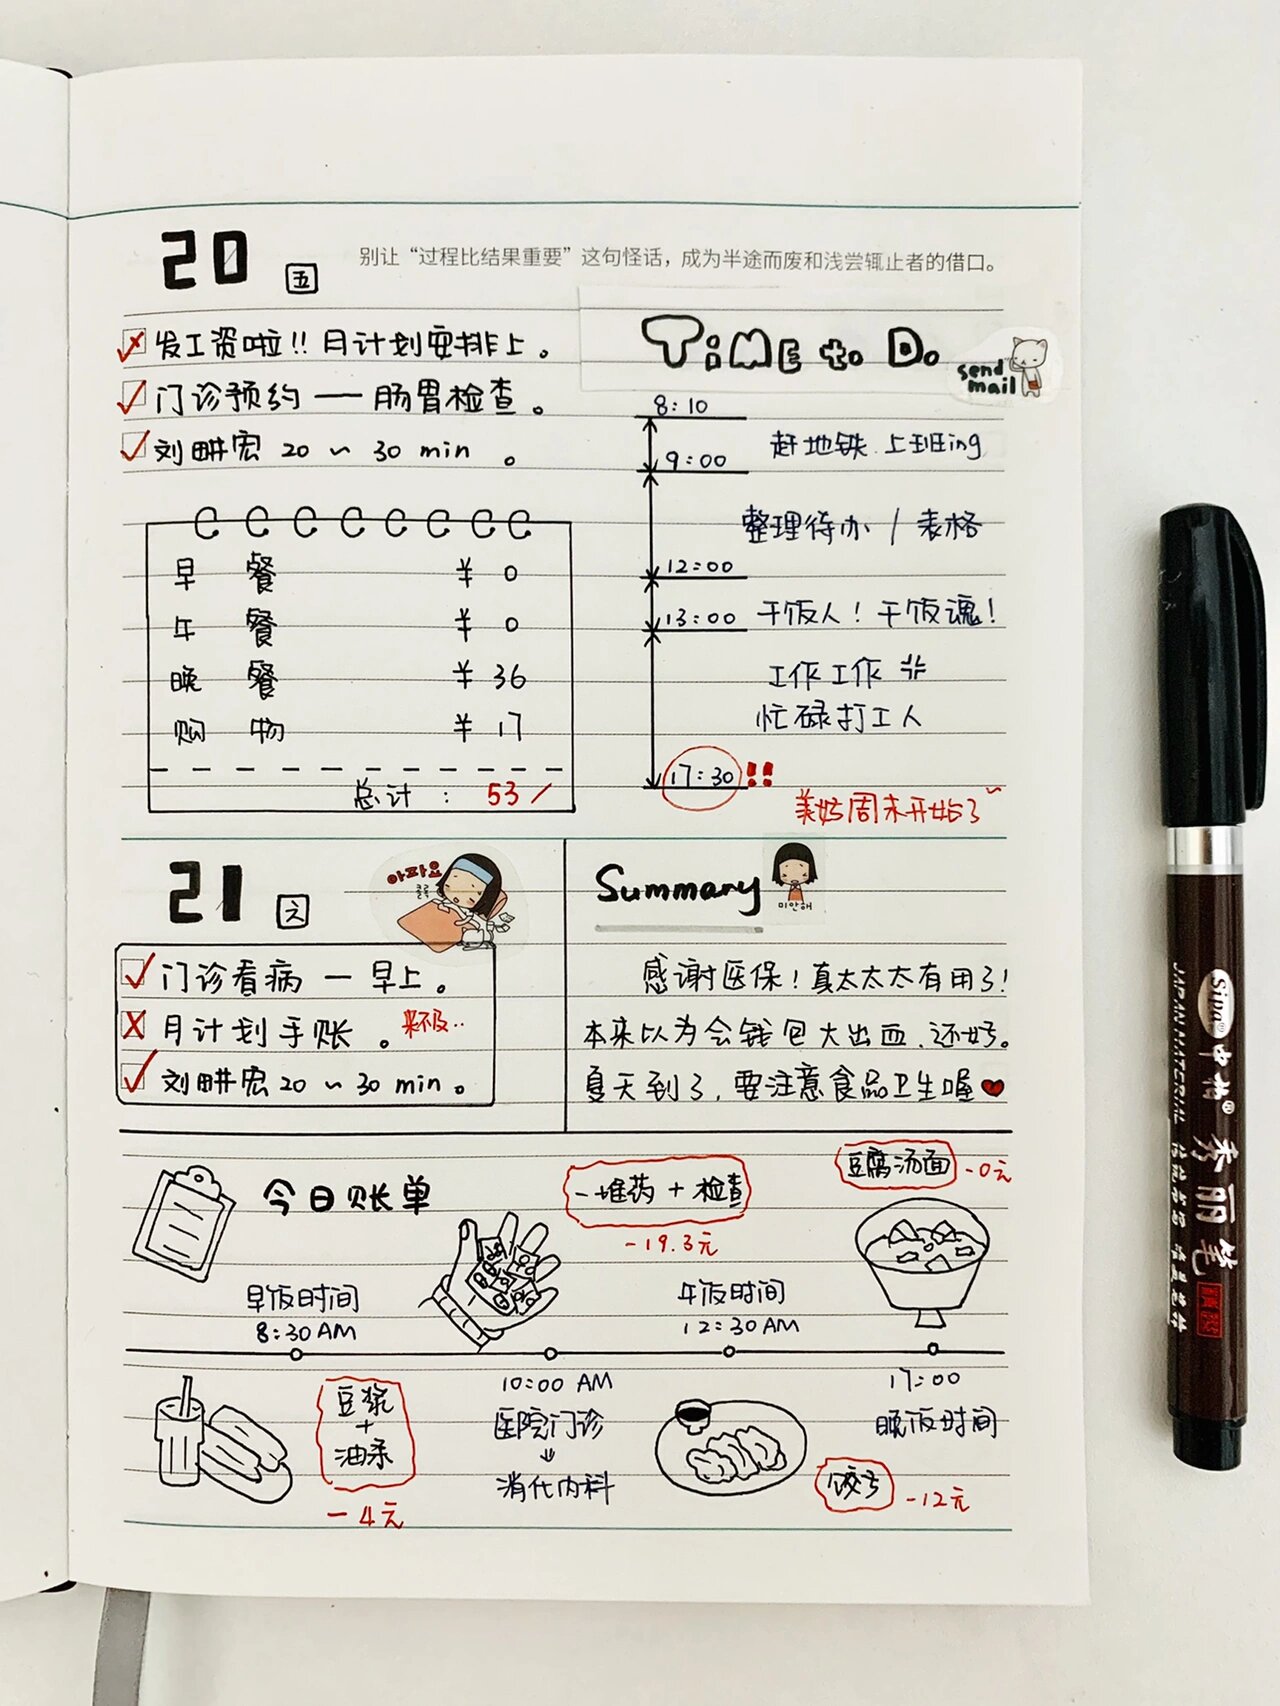 20 五
别让“过程比结果重要”这句怪话，成为半途而废和浅尝辄止者的借口。
发工资啦!! 月计划安排上。
门诊预约 — 肠胃检查。
刘畊宏 20 ~ 30 min 。
早 餐 ¥ 0
午 餐 ¥ 0
晚 餐 ¥ 36
购 物 ¥ 17
总计 : 53 /
TiME to. Do.
send mail
8:10
赶地铁.上班ing
9:00
整理待办 / 表格
12:00
干饭人! 干饭魂!
13:00
工作工作
忙碌打工人
17:30 !!
美好周末开始了~
21 六
아파요
콜록
门诊看病 — 早上。
月计划手账 。来不及..
刘畊宏 20 ~ 30 min 。
Summary
미안해
感谢医保! 真太太太有用了!
本来以为会钱包大出血.还好。
夏天到了,要注意食品卫生喔
今日账单
一堆药 + 检查
-19.3元
豆腐汤面 -0元
早饭时间
8:30AM
午饭时间
12:30AM
豆浆
+
油条
-4元
10:00 AM
医院门诊
消化内科
17:00
晚饭时间
饺子 -12元
Sipa 中柏 秀丽笔
JAPAN MATERIAL